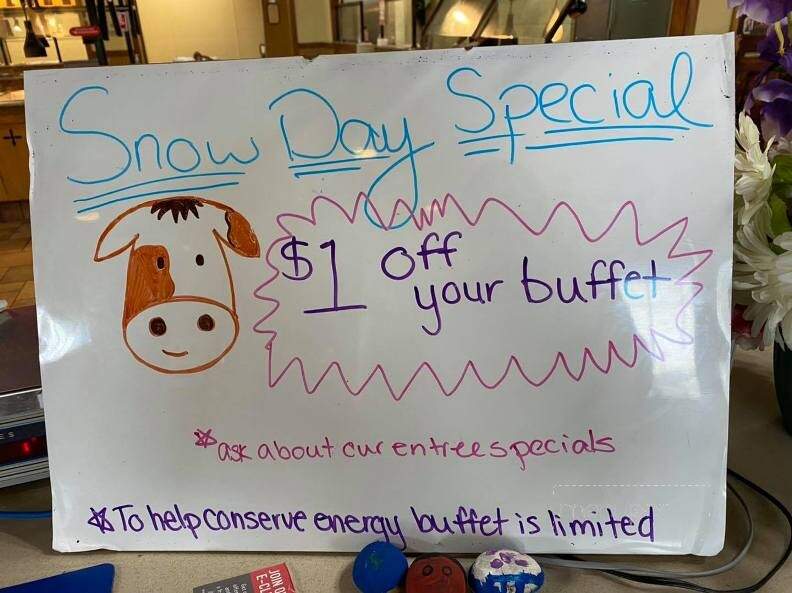 Snow Day Special
$1 off
your buffet
*ask about our entree specials
*To help conserve energy buffet is limited
JOIN OU
E-CL